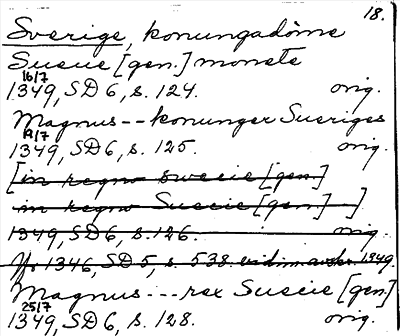 18.
Sverige, konungadöme
Suecie [gen.] monete
16/7
1349, SD 6, s. 124. orig.
Magnus -- konunger Sueriges
19/7
1349, SD 6, s. 125. orig.
[in regno Swecie [gen.]
in regno Suecie [gen.] ].
1349, SD 6, s. 126. orig.
Jfr 1346, SD 5, s. 538. vidim. avskr. 1349.
Magnus --- rex Suecie [gen.]
25/7
1349, SD 6, s. 128. orig.